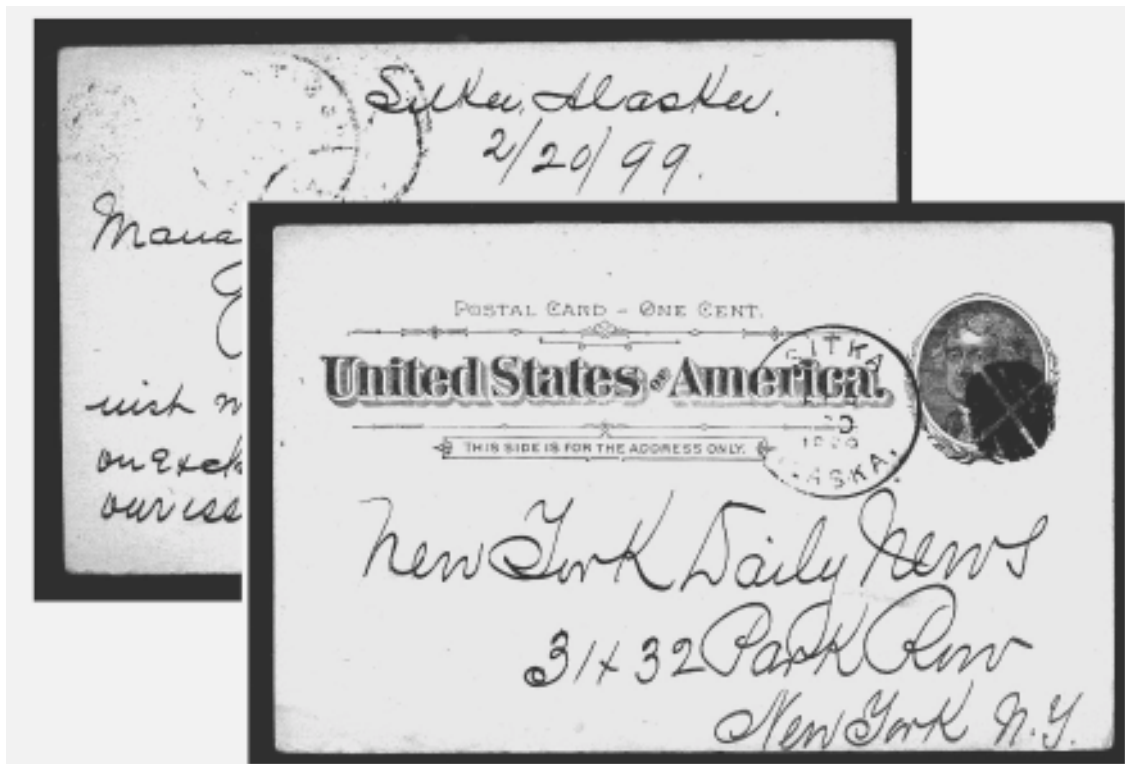 Sitka, Alaska.
2/20/99.
Mana
wish
on Exch
our iss
POSTAL CARD – ONE CENT.
United States of America.
THIS SIDE IS FOR THE ADDRESS ONLY.
SITKA
ALASKA.
New York Daily News
31 + 32 Park Row
New York N.Y.